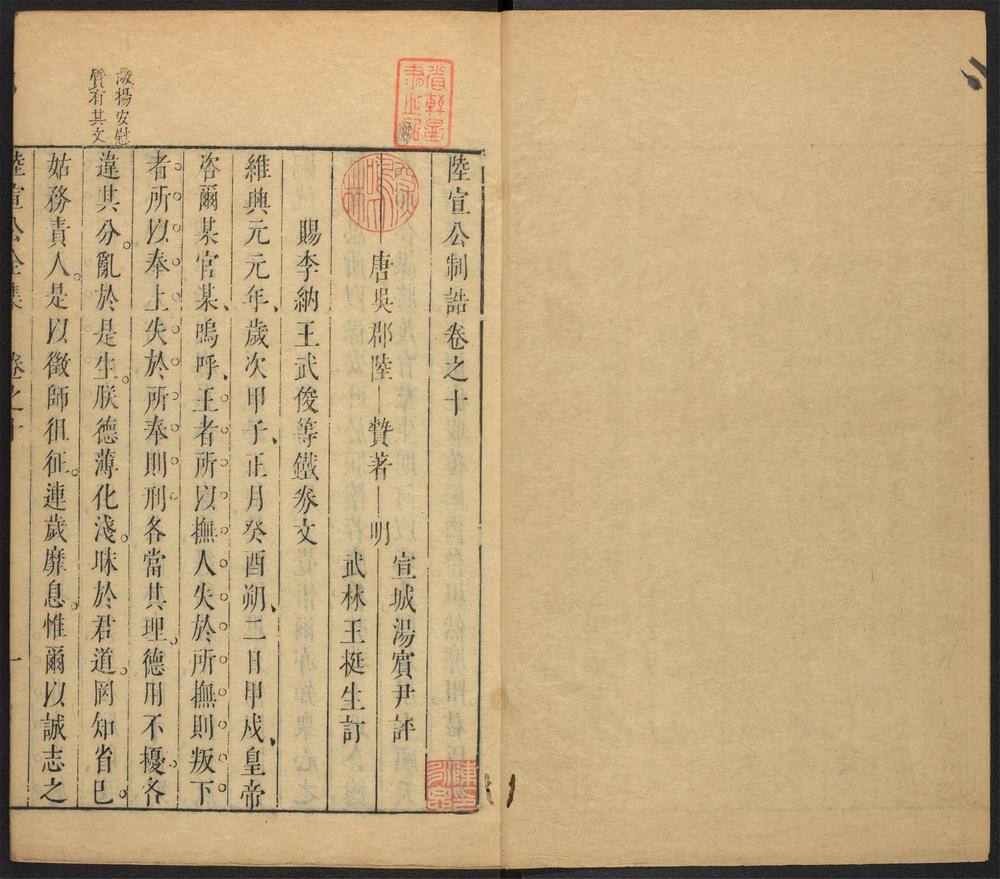 陸宣公制誥卷之十
唐吳郡陸贄著
明
宣城湯賓尹評
武林王挺生訂
賜李納王武俊等鐵劵文
維興元元年、歲次甲子、正月癸酉朔、二日甲戌、皇帝
咨爾某官某、嗚呼、王者所以撫人失於所撫則叛下
者所以奉上失於所奉則刑各當其理。德用不擾各
違其分。亂於是生。朕德薄化淺。昧於君道。罔知省已。
姑務責人。是以徵師徂征。連歲靡息。惟爾以誠志之
陸宣公全集 卷之十 一
揚安慰
質有其文